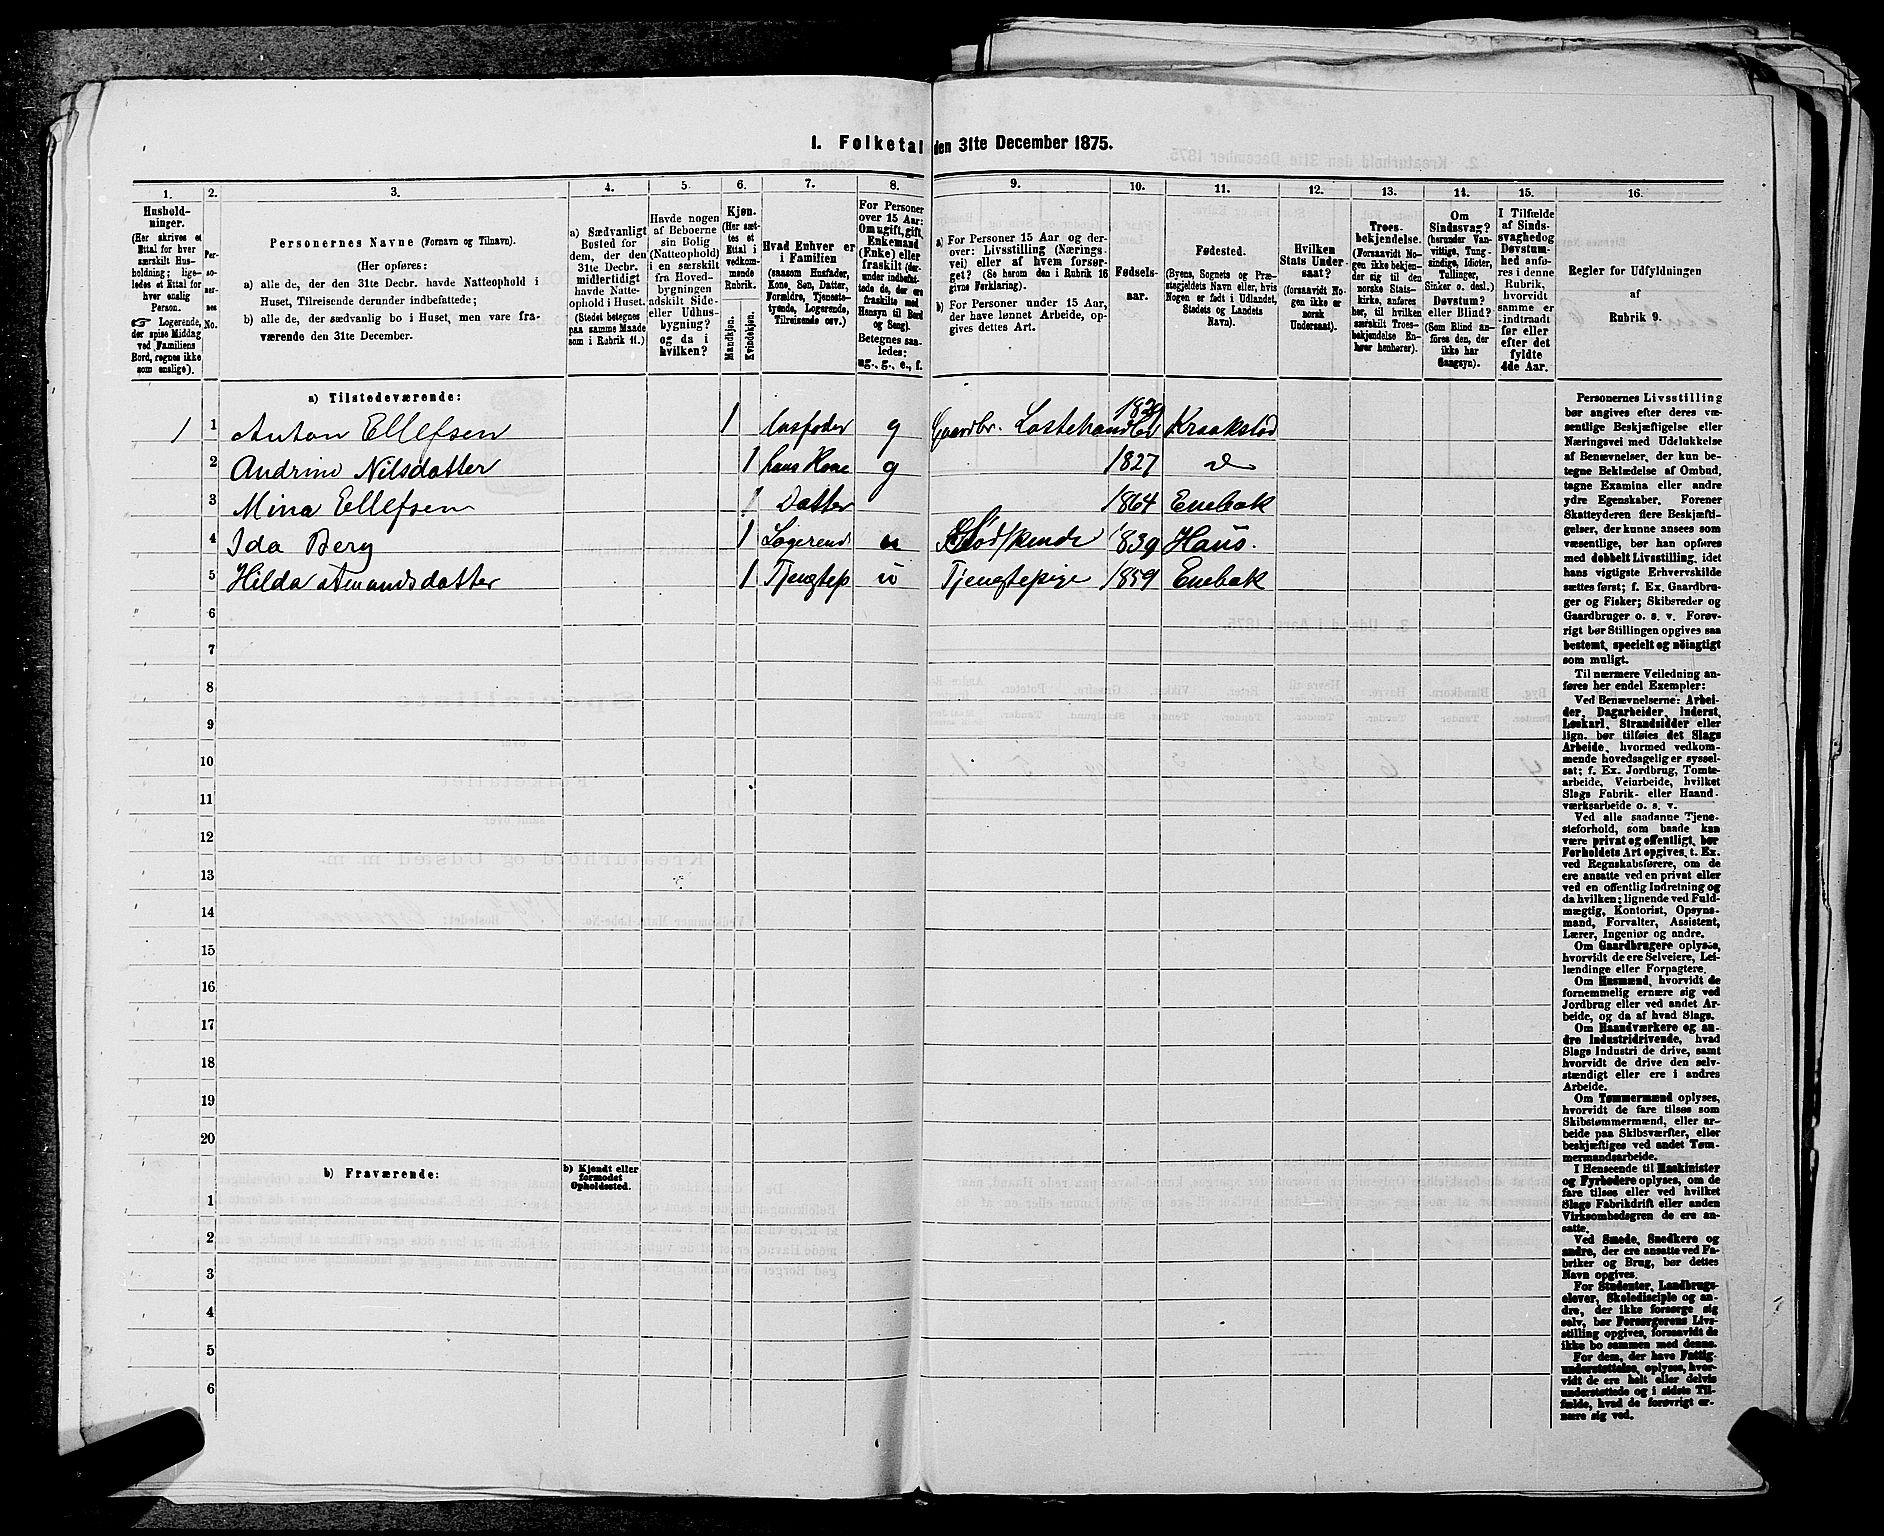 1. Folketal den 31te December 1875.
1. 2. 3. 4. 5. 6. 7. 8. 9. 10. 11. 12. 13. 14. 15. 16.
Hushold-
ninger.
(Her skrives et
Ettal for hver
særskilt Hus-
holdning; lige-
ledes et Ettal for
hver enslig
Person.
☞ Logerende,
der spise Middag
ved Familiens
Bord, regnes ikke
som enslige).
Per-
so-
ner-
nes
No.
Personernes Navne (Fornavn og Tilnavn).
(Her opføres:
a) alle de, der den 31te Decbr. havde Natteophold i
Huset, Tilreisende derunder indbefattede;
b) alle de, der sædvanlig bo i Huset, men vare fra-
værende den 31te December.
a) Sædvanligt
Bosted for
dem, der den
31te Decbr.
midlertidigt
havde Natte-
ophold i Huset.
(Stedet betegnes
paa samme Maade
som i Rubrik 11.)
Havde nogen
af Beboerne
sin Bolig
(Natteophold)
i en særskilt
fra Hoved-
bygningen
adskilt Side-
eller Udhus-
bygning?
og da i
hvilken?
Kjøn.
(Her sæt-
tes et
Ettal i
vedkom-
mende
Rubrik.
Mandkjøn.
Kvindekjøn.
Hvad Enhver er
i Familien
(saasom Husfader,
Kone, Søn, Datter,
Forældre, Tjeneste-
tyende, Logerende,
Tilreisende osv.)
For Personer
over 15 Aar:
Om ugift, gift,
Enkemand
(Enke) eller
fraskilt (der-
under indbefat-
tede de, der ere
fraskilte med
Hensyn til Bord
og Seng).
Betegnes saa-
ledes:
ug., g., e., f.
a) For Personer 15 Aar og der-
over: Livsstilling (Nærings-
vei) eller af hvem forsør-
get? (Se herom den i Rubrik 16
givne Forklaring).
b) For Personer under 15 Aar,
der have lønnet Arbeide, op-
gives dettes Art.
Fødsels-
aar.
Fødested.
(Byens, Sognets og Præ-
stegjeldets Navn eller, hvis
Nogen er født i Udlandet,
Stedets og Landets
Navn).
Hvilken
Stats Under-
saat?
(forsaavidt No-
gen ikke er
norsk
Undersaat).
Troes-
bekjendelse.
(Forsaavidt No-
gen ikke bekjen-
der sig til den
norske Stats-
kirke, anføres
her, til hvilken
særskilt Troes-
bekjendelse En-
hver henhører).
Om
Sindssvag?
(herunder Van-
vittige, Tung-
sindige, Idioter,
Tullinger,
Sinker o. desl.)
Døvstum?
eller Blind?
(Som Blind an-
føres den, der
ikke har
Gangsyn).
I Tilfælde
af Sinds-
svaghed og
Døvstum-
hed anfø-
res i denne
Rubrik,
hvorvidt
samme er
indtraadt
før eller
efter det
fyldte
4de Aar.
Regler for Udfyldningen
af
Rubrik 9.
a) Tilstedeværende:
1 1 Anton Ellefsen 1 husfader g Gaardbr. Lastehandler Kraakstad
2 Andrine Nilsdatter 1 hans Kone g 1827 do
3 Mina Ellefsen 1 Datter 1864 Enebak
4 Ida Berg 1 Logerend u 1839
5 Hilda Amandsdatter 1 Tjenstep u Tjenstepige 1859 Enebak
6
7
8
9
10
11
12
13
14
15
16
17
18
19
20
b) Fraværende:
b) Kjendt eller
formodet
Opholdssted.
1
2
3
4
5
6
Personernes Livsstilling
bør angives efter deres væ-
sentlige Beskjæftigelse eller
Næringsvei med Udelukkelse
af Benævnelser, der kun be-
tegne Beklædelse af Ombud,
tagne Examina eller andre
ydre Egenskaber. Forener
Skatteyderen flere Beskjæfti-
gelser, der kunne ansees som
væsentlige, bør han opføres
med dobbelt Livsstilling, idet
hans vigtigste Erhvervskilde
sættes først; f. Ex. Gaardbru-
ger og Fisker; Skibsreder og
Gaardbruger o. s. v. Forøv-
rigt bør Stillingen opgives saa
bestemt, specielt og nøiagtigt
som muligt.
Til nærmere Veiledning an-
føres her endel Exempler:
Ved Benævnelserne: Arbei-
der, Dagarbeider, Inderst,
Løskarl, Strandsidder eller
lign. bør tilføies det Slags
Arbeide, hvormed vedkom-
mende hovedsagelig er syssel-
sat; f. Ex. Jordbrug, Tomte-
arbeide, Veiarbeide, hvilket
Slags Fabrik- eller Haand-
værksarbeide o. s. v.
Ved alle saadanne Tjene-
steforhold, som baade kan
være privat og offentligt, bør
Forholdets Art opgives, t. Ex.
ved Regnskabsførere, om de
ere ansatte ved en privat eller
ved en offentlig Indretning og
da hvilken; lignende ved Fuld-
mægtig, Kontorist, Opsyns-
mand, Forvalter, Assistent,
Lærer, Ingeniør og andre.
Om Gaardbrugere oplyses,
hvorvidt de ere Selveiere, Lei-
lændinge eller Forpagtere.
Om Husmænd, hvorvidt de
fornemmelig ernære sig ved
Jordbrug eller ved andet Ar-
beide, og da af hvad Slags.
Om Haandværkere og an-
dre Industridrivende, hvad
Slags Industri de drive, samt
hvorvidt de drive den selv-
stændigt eller ere i andres
Arbeide.
Om Tømmermænd oplyses,
hvorvidt de fare tilsøs som
Skibstømmermænd, eller ar-
beide paa Skibsværfter, eller
beskjæftiges ved andet Tøm-
mermandsarbeide.
I Henseende til Maskinister
og Fyrbødere oplyses, om de
fare tilsøs eller ved hvilket
Slags Fabrikdrift eller anden
Virksombedsgren de ere an-
satte.
Ved Smede, Snedkere og
andre, der ere ansatte ved Fa-
briker og Brug, bør dettes
Navn opgives.
For Studenter, Landbrugs-
elever, Skoledisciple og an-
dre, der ikke forsørge sig
selv, bør Forsørgerens Livs-
stilling opgives, forsaavidt de
ikke bo sammen med denne.
For dem, der have Fattig-
understøttelse, oplyses, hvor-
vidt de ere helt eller delvis
understøttede og i sidste Til-
fælde, hvad de forøvrigt er-
nære sig ved.